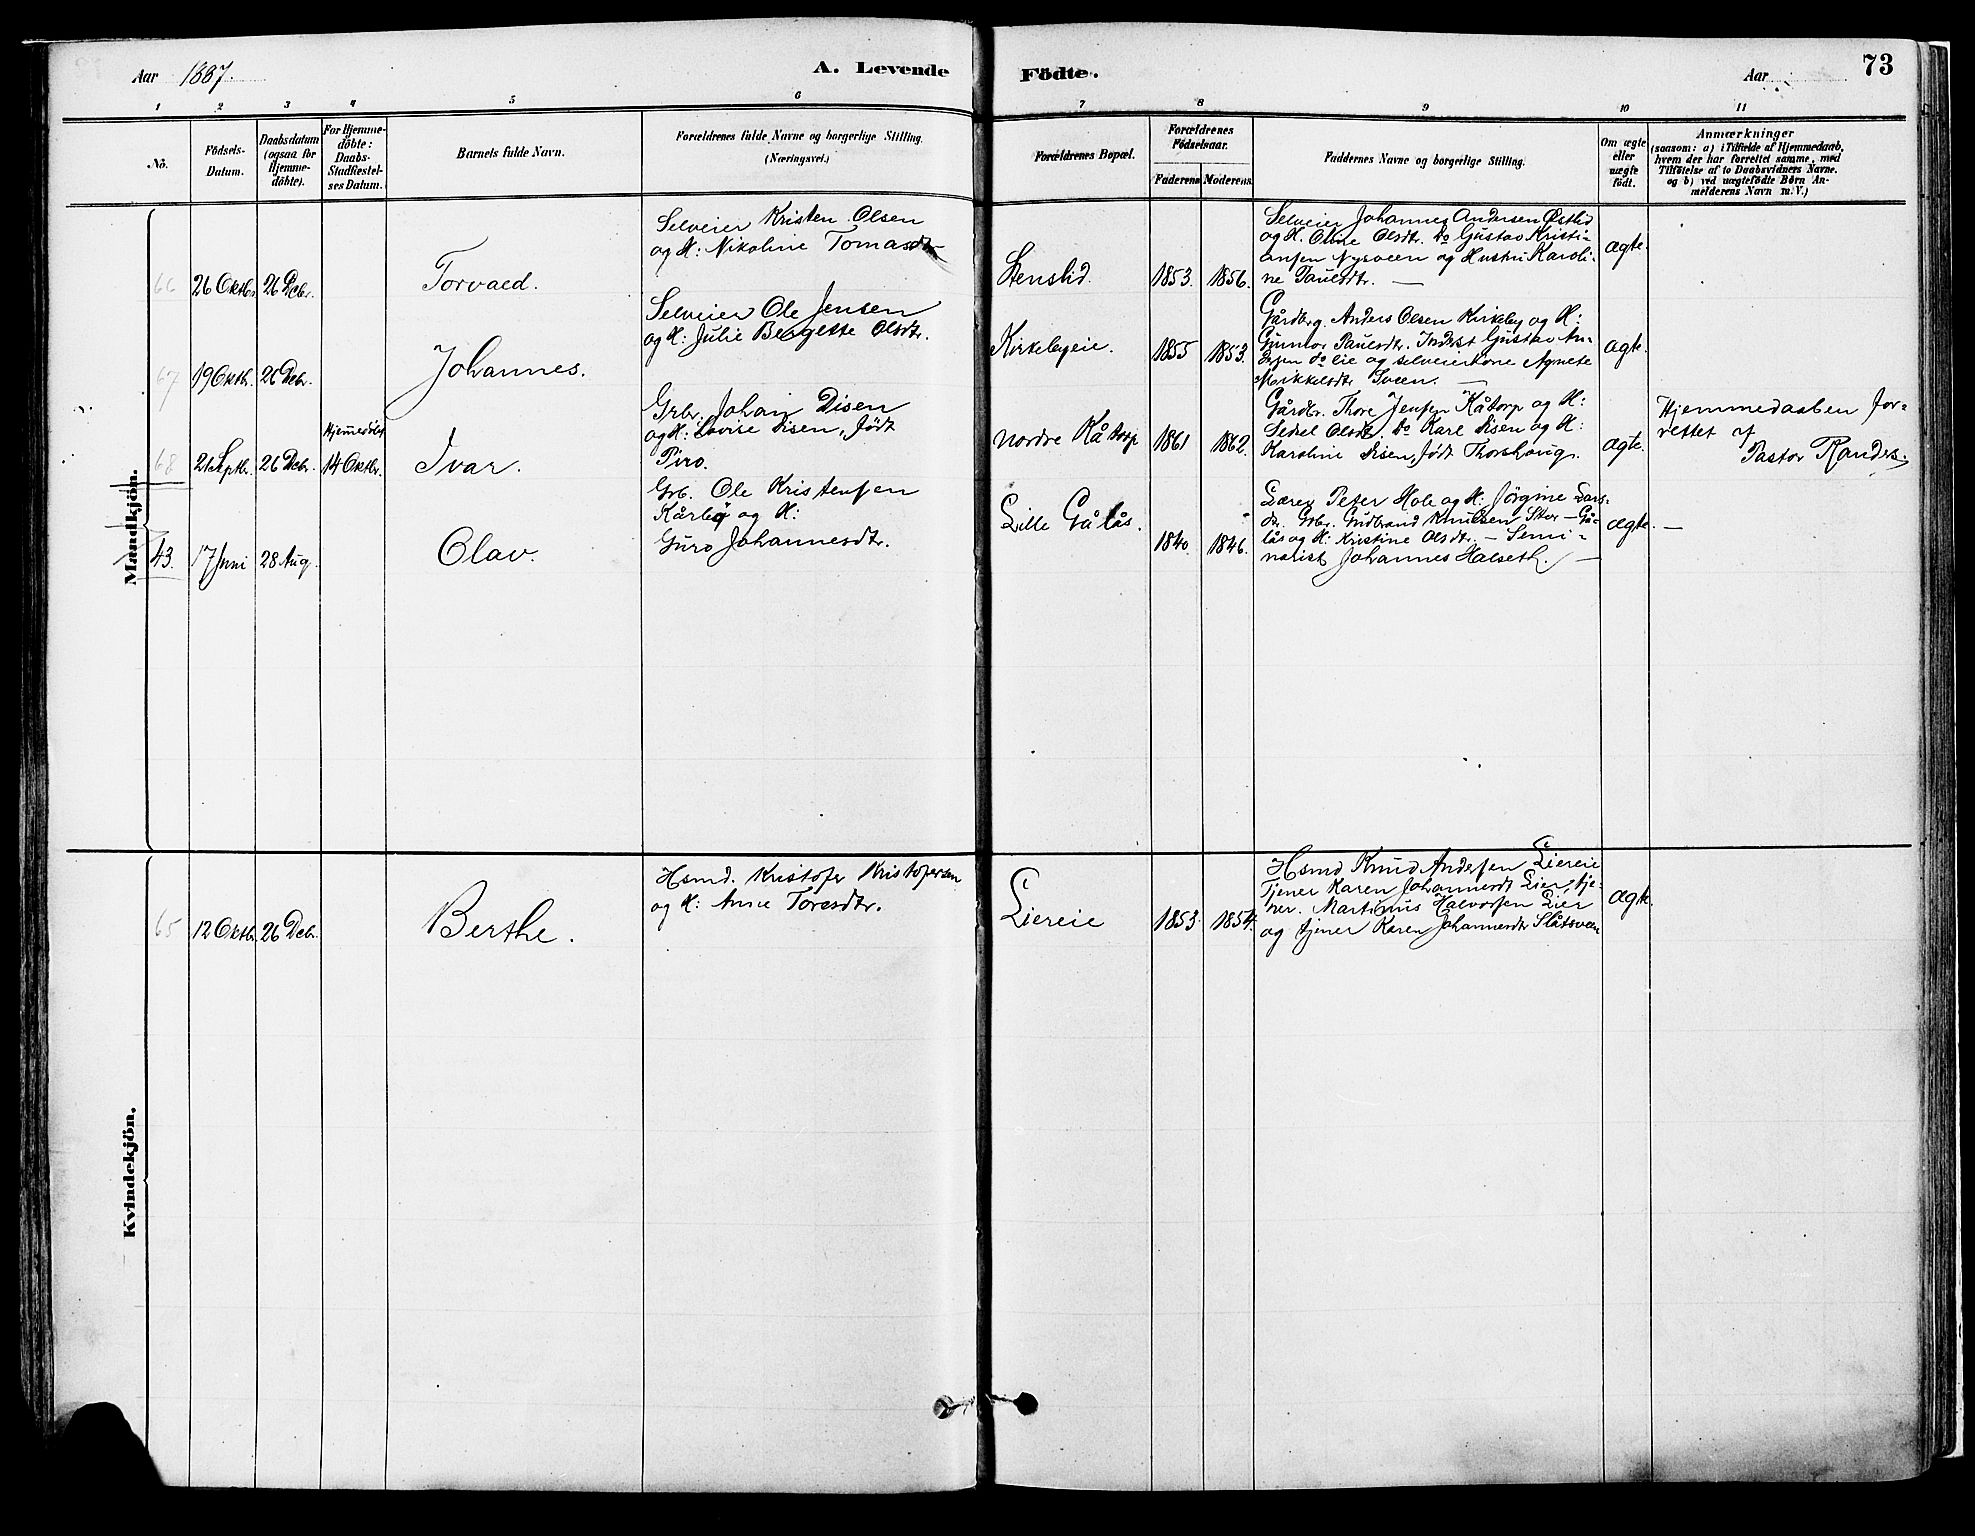 Aar 1887.
A. Levende Födte.
Aar
73
1 2 3 4 5 6 7 8 9 10 11
No.
Födsels-
Datum.
Daabsdatum
(ogsaa for
Hjemme-
döbte).
For Hjemme-
döbte:
Daabs-
Stadfæstel-
ses Datum.
Barnets fulde Navn.
Forældrenes fulde Navne og borgerlige Stilling.
(Næringsvei.)
Forældrenes Bopæl.
Forældrenes
Födselsaar.
Faderens Moderens.
Faddernes Navne og borgerlige Stilling.
Om ægte
eller
uægte
födt.
Anmærkninger
(saasom: a) i Tilfælde af Hjemmedaab,
hvem der har forrettet samme, med
Tilföielse af to Daabsvidners Navne.
og b) ved uægtefödte Börn An-
melderens Navn m. V.)
Mandkjön.
66
26 Oktbr.
26 Debr.
Torvaed.
Selveier Kristen Olsen
og H: Nikoline Tomasdtr
Stenslid.
1853.
1856.
Selveier Johannes Andersen Østlid
og H. Oline Olsdtr. Do Gustav Kristi-
ansen Nysveen og Hustru Karoli-
ne Paulsdtr. —
ægte.
67
19 Oktbr.
26 Debr.
Johannes.
Selveier Ole Jensen
og H: Julie Bergette Olsdtr.
Kirkebyeie.
1855
1853.
Gårdbrg. Anders Olsen Kirkeby og H:
Gunnor Paulsdtr. Inderst Gustav An-
dersen do eie og selveierkone Agnete
Mikkelsdtr Sveen. —
ægte.
68
21 Septb.
26 Debr.
Hjemmedöbt
14 Oktbr.
Ivar.
Grbr. Johan Disen
og H: Lovise Disen, födt
Piro.
nordre Kåtorp
1861
1862.
Gårdbr. Thore Jensen Kåtorp og H:
Sedsel Olsdtr. Do Karl Disen og H:
Karoline Disen, födt Thorshaug.
ægte.
Hjemmedaaben for-
rettet af
Pastor Randers.
43.
17 Juni
28 Aug.
Olav.
Grb. Ole Kristensen
Kårbø og H:
Guro Johannesdtr.
Lille Gålås.
1840.
1846.
Lærer Peter Hole og H: Jørgine Lars-
dtr. Grbr. Gudbrand Knutsen Stor-Gå-
lås og H: Kristine Olsdtr. — Semi-
narist Johannes Halseth. —
ægte. —
Kvindekjön.
65
12 Oktbr.
26 Deb.
Berthe.
Hsmd. Kristofer Kristofersen
og H: Anne Toresdtr.
Liereie
1853.
1854.
Hsmd Knud Andersen Liereie
Tjener Karen Johannesdt Lier, tje-
ner. Martinus Halvorsen Lier
og tjener Karen Johannesdtr Slåtsveen
ægte.